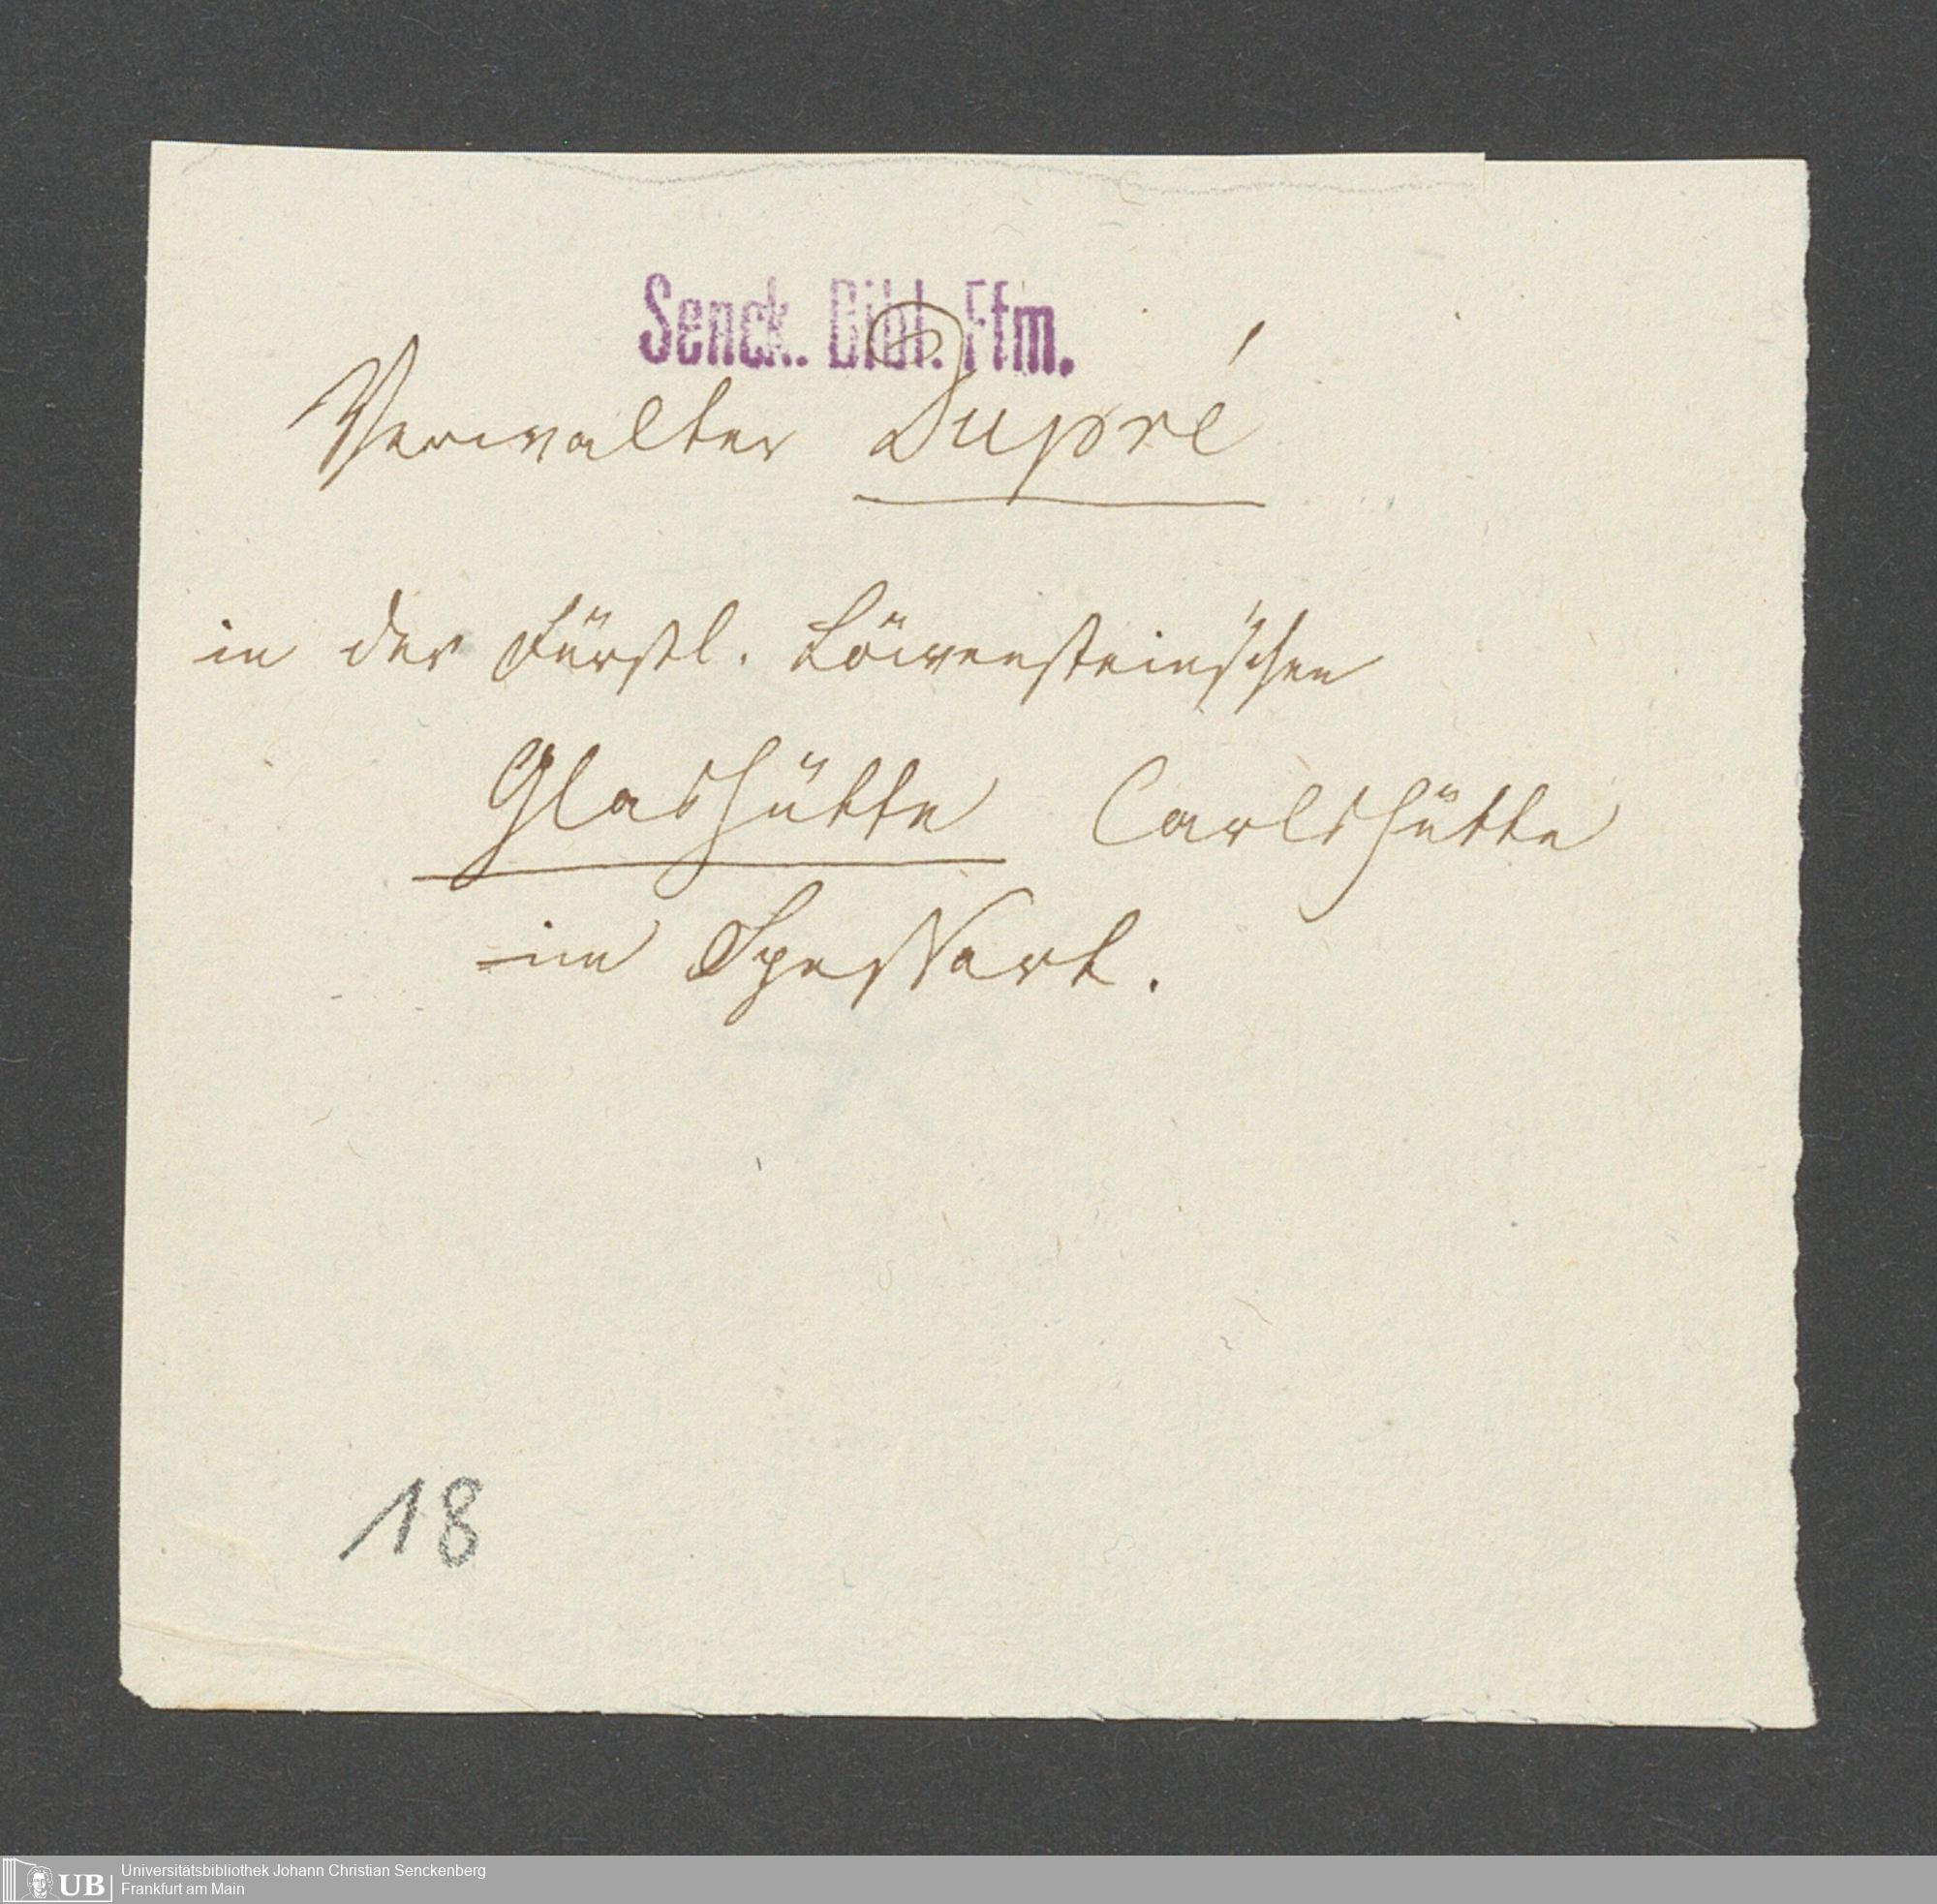 Senck. Bibl. Ffm.
Verwalter Dupré
in der Fürstl. Löwenstein'schen
Glashütte Carlshütte
im Spessart.
18
UB Universitätsbibliothek Johann Christian Senckenberg
Frankfurt am Main